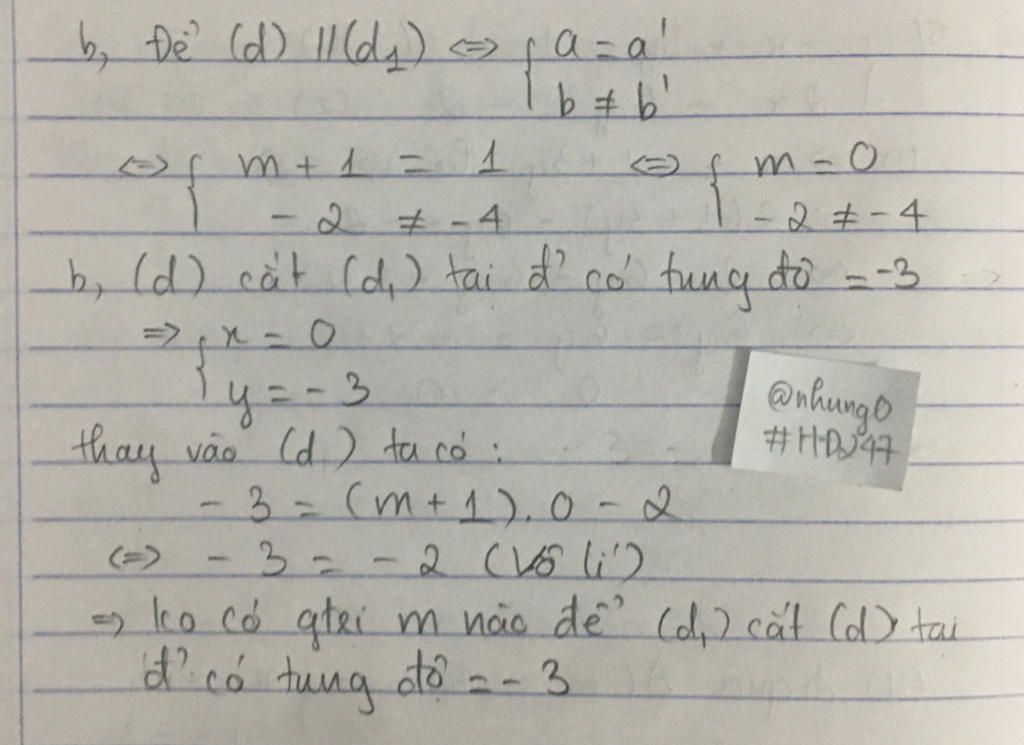 b, Để (d) // (d1) <=> { a = a'
b ≠ b'
<=> { m + 1 = 1 <=> { m = 0
- 2 ≠ - 4 - 2 ≠ - 4
b, (d) cắt (d1) tại đ² có tung độ = -3
=> { x = 0
y = - 3
thay vào (d) ta có :
- 3 = (m + 1). 0 - 2
<=> - 3 = - 2 (Vô lí)
=> ko có gtrị m nào để (d1) cắt (d) tại
đ² có tung độ = - 3
@nhung0
#HDJ47